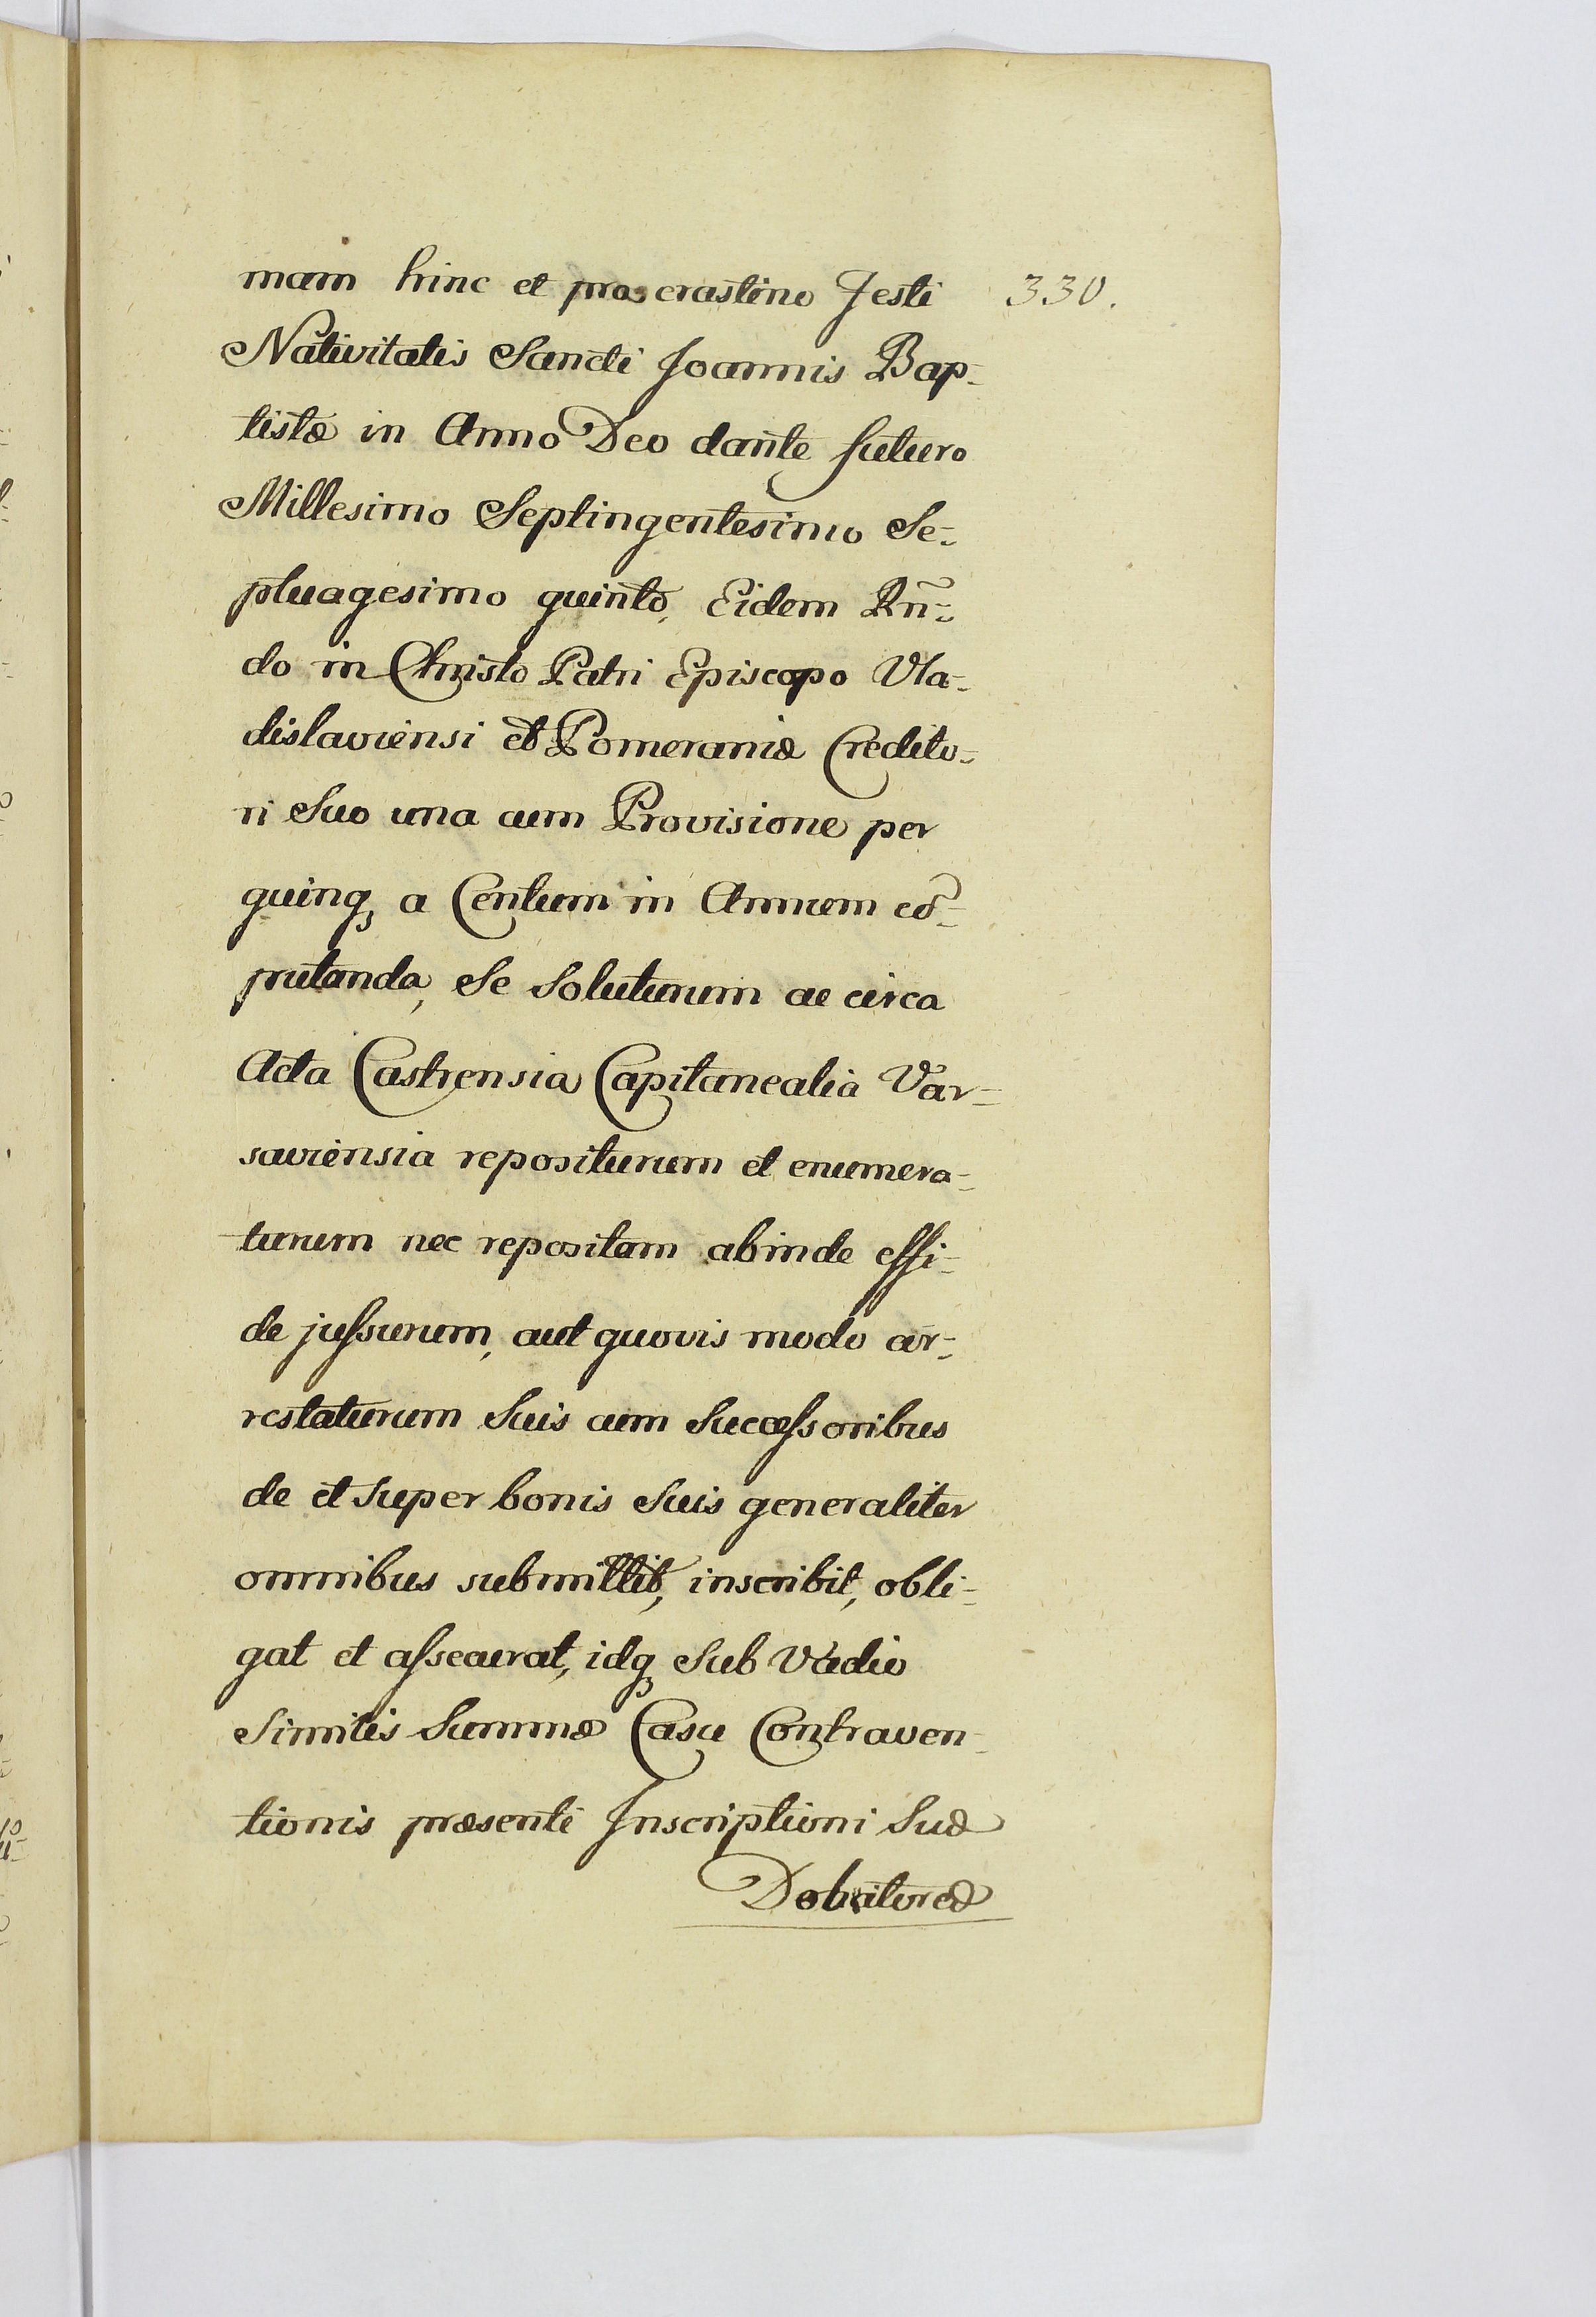 mam hinc et pro crastino Festi 330.
Nativitatis Sancti Joannis Bap=
tistæ in Anno Deo dante futuro
Millesimo Septingentesimo Se=
ptuagesimo quinto, Eidem Rñ=
do in Christo Patri Episcopo Vla=
dislaviensi et Pomeraniæ Credito=
ri Suo una cum Provisione per
quinq, a Centum in Annum cõ=
putanda, Se Soluturum ac circa
Acta Castrensia Capitanealia Var=
saviensia repositurum et enumera=
turum nec repositam abinde effi=
de jussurum, aut quovis modo ar=
restaturum Suis cum Successoribus
de et super bonis Suis generaliter
omnibus submittit, inscribit, obli=
gat et assecurat, idq, Sub Vadio
Similis Summæ Casu Contraven=
tionis præsenti Inscriptioni Suæ